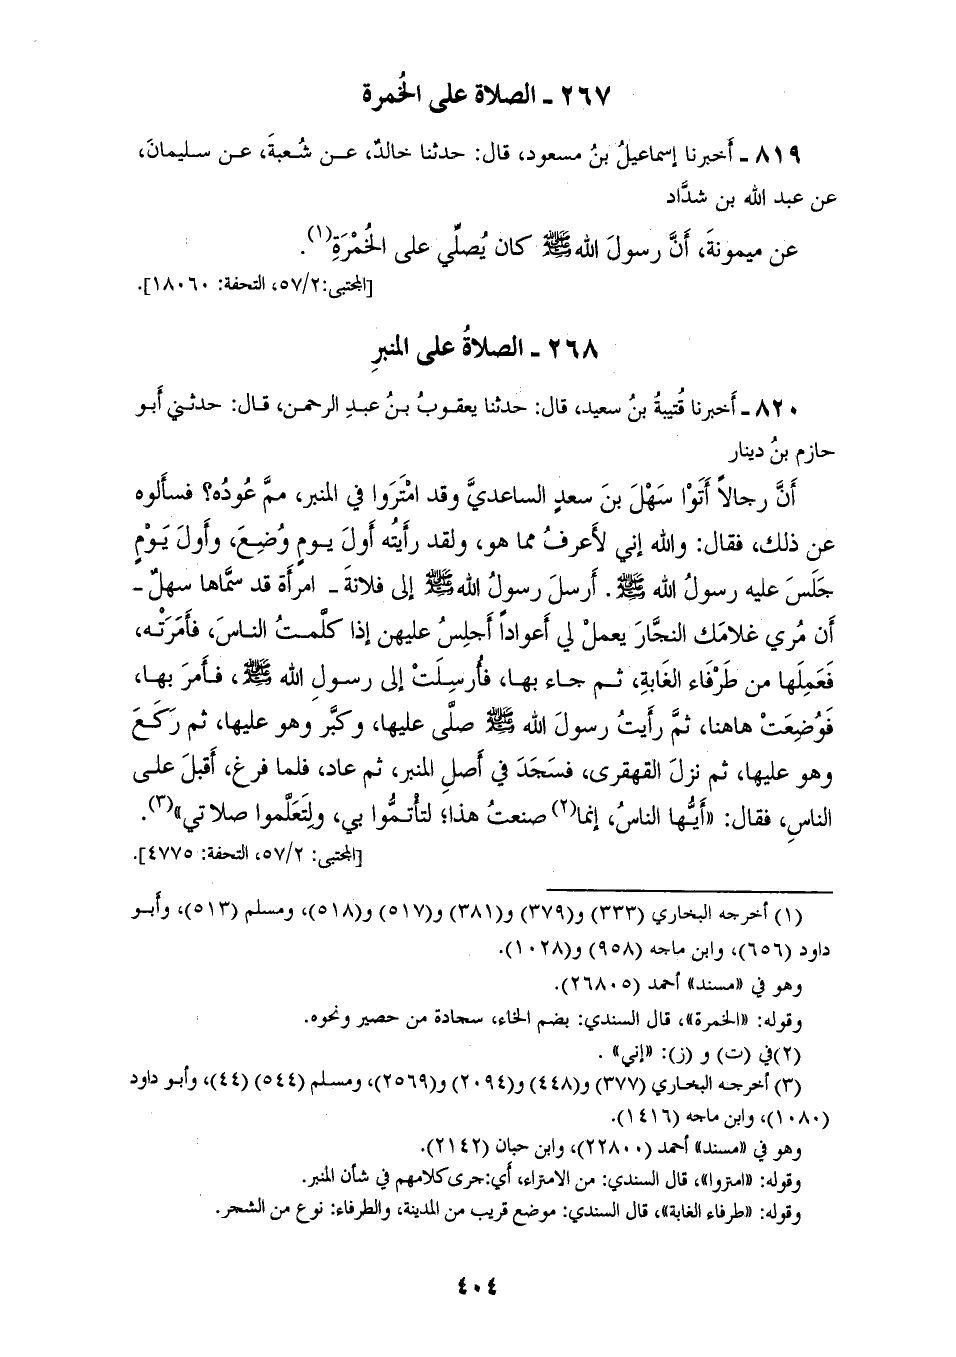 ٢٦٧ ـ الصلاة على الخُمرة
٨١٩ ـ أَخبرنا إسماعيلُ بنُ مسعود، قال: حدثنا خالدٌ، عن شُعبةَ، عن سليمانَ،
عن عبد الله بن شدَّاد
عن ميمونةَ، أَنَّ رسولَ الله ﷺ كان يُصلِّي على الخُمْرَةِ(١).
[المجتبى: ٥٧/٢، التحفة: ١٨٠٦٠].
٢٦٨ ـ الصلاةُ على المنبرِ
٨٢٠ ـ أَخبرنا قُتيبةُ بنُ سعيد، قال: حدثنا يعقوبُ بنُ عبدِ الرحمن، قال: حدثني أَبو
حازم بنُ دينار
أَنَّ رجالاً أَتَوْا سَهْلَ بنَ سعدٍ الساعديَّ وقد امْتَرَوا في المنبر، ممَّ عُودُه؟ فسأَلوه
عن ذلك، فقال: والله إني لأَعرفُ مما هو، ولقد رأَيتُه أَولَ يومٍ وُضِعَ، وأَولَ يَوْمٍ
جَلَسَ عليه رسولُ الله ﷺ. أَرسلَ رسولُ الله ﷺ إلى فلانةَ ـ امرأَة قد سمَّاها سهلٌ ـ
أَن مُري غلامَك النجَّارَ يعملْ لي أَعواداً أَجلِسُ عليهن إذا كلَّمتُ الناسَ، فأَمَرَتْه،
فَعَمِلَها من طَرْفَاء الغَابةِ، ثم جاء بها، فأُرسِلَتْ إلى رسولِ الله ﷺ، فأَمرَ بها،
فَوُضِعَتْ هاهنا، ثمَّ رأَيتُ رسولَ الله ﷺ صلَّى عليها، وكبَّر وهو عليها، ثم رَكَعَ
وهو عليها، ثم نزلَ القهقرى، فسَجَدَ في أَصلِ المنبر، ثم عاد، فلما فرغ، أَقبلَ على
الناسِ، فقال: «أَيُّها الناسُ، إنما(٢) صنعتُ هذا؛ لتأْتمُّوا بي، ولِتَعَلَّموا صلاتي»(٣).
[المجتبى: ٥٧/٢، التحفة: ٤٧٧٥].
(١) أخرجه البخاري (٣٣٣) و(٣٧٩) و(٣٨١) و(٥١٧) و(٥١٨)، ومسلم (٥١٣)، وأبو
داود (٦٥٦)، وابن ماجه (٩٥٨) و(١٠٢٨).
وهو في «مسند» أحمد (٢٦٨٠٥).
وقوله: «الخمرة»، قال السندي: بضم الخاء، سجادة من حصير ونحوه.
(٢)في (ت) و (ز): «إني» .
(٣) أخرجه البخاري (٣٧٧) و(٤٤٨) و(٢٠٩٤) و(٢٥٦٩)، ومسلم (٥٤٤) (٤٤)، وأبو داود
(١٠٨٠)، وابن ماجه (١٤١٦).
وهو في «مسند» أحمد (٢٢٨٠٠)، وابن حبان (٢١٤٢).
وقوله: «امتروا»، قال السندي: من الامتراء، أَي:جرى كلامهم في شأن المنبر.
وقوله: «طرفاء الغابة»، قال السندي: موضع قريب من المدينة، والطرفاء: نوع من الشجر.
٤٠٤